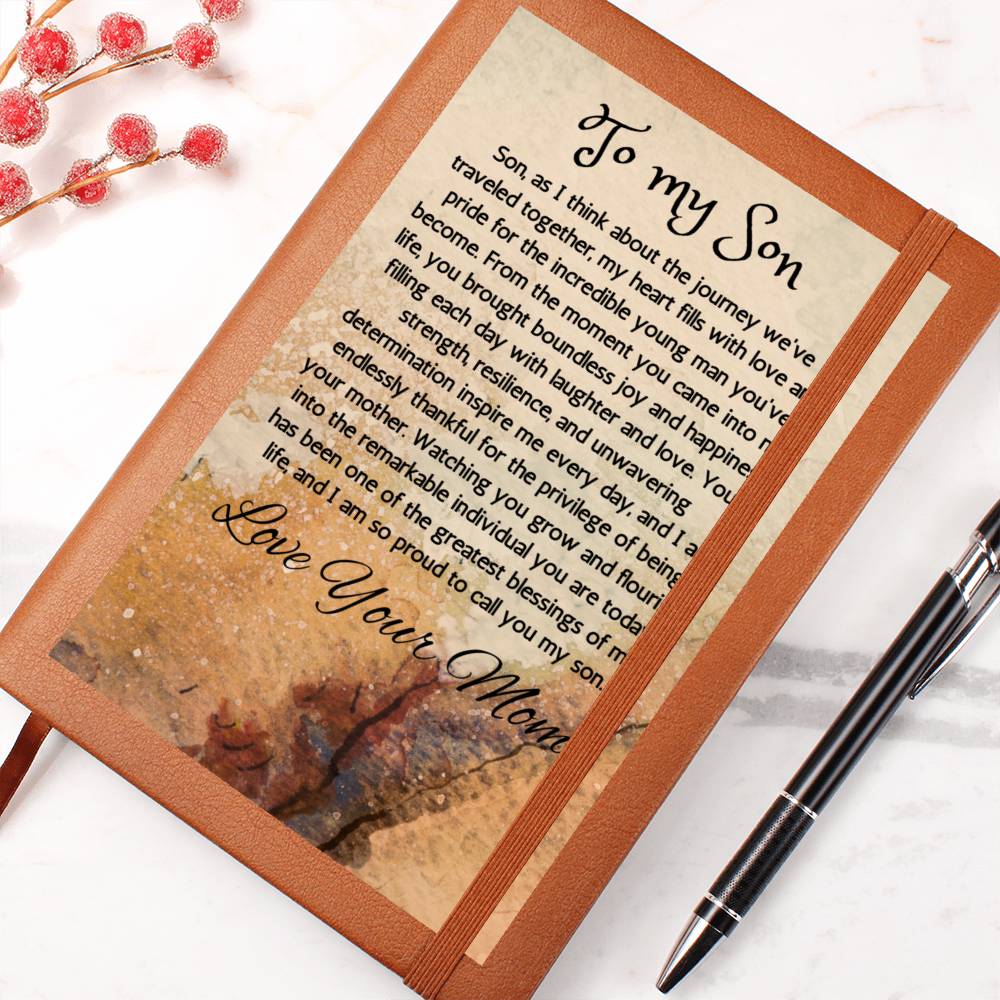 To my Son
Son, as I think about the journey we've
traveled together, my heart fills with love an
pride for the incredible young man you've
become. From the moment you came into m
life, you brought boundless joy and happines
filling each day with laughter and love. You
strength, resilience, and unwavering
determination inspire me every day, and I a
endlessly thankful for the privilege of being
your mother. Watching you grow and flouri
into the remarkable individual you are toda
has been one of the greatest blessings of m
life, and I am so proud to call you my son.
Love Your Mom